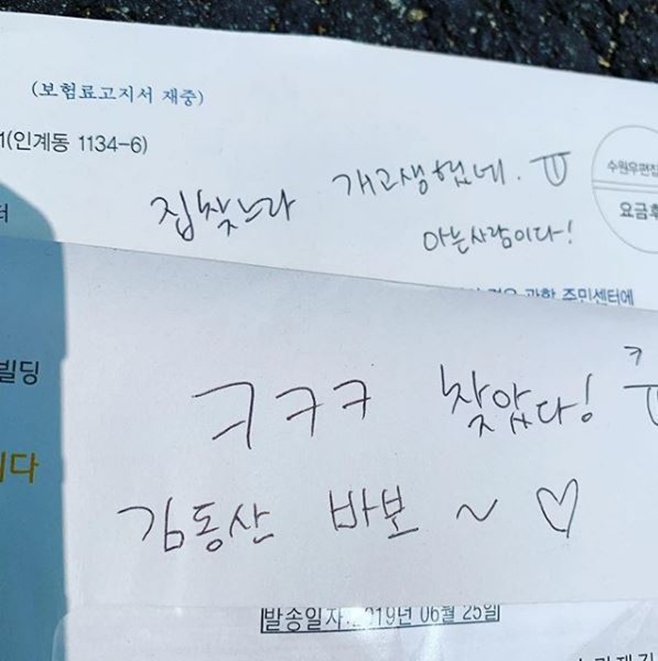 (보험료고지서 재중)
1(인계동 1134-6)
수원우편집
요금후
집찾느라 개고생했네. ㅠ
아는사람이다!
관할 주민센터에
빌딩
ㅋㅋㅋ 찾았다!
김동산 바보 ~ ♡
발송일자:2019년 06월 25일